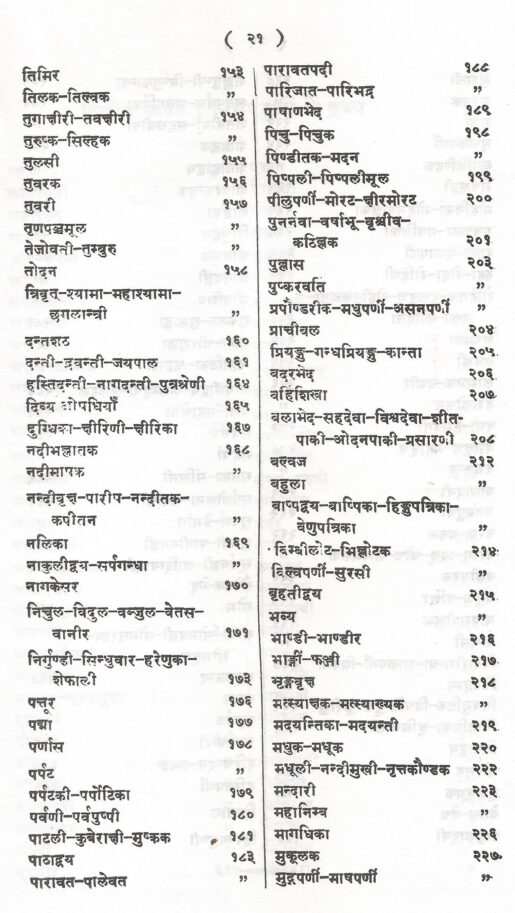 ( २१ )
तिमिर १५३
तिलक-तिल्वक ”
तुगाक्षीरी-तवक्षीरी १५४
तुरुष्क-सिल्हक ”
तुलसी १५५
तुवरक १५६
तुवरी १५७
तृणपञ्चमूल ”
तेजोवती-तुम्बुरु ”
तोदन १५८
त्रिवृत्-श्यामा-महाश्यामा-
छगलान्त्री ”
दन्तशठ १६०
दन्ती-द्रवन्ती-जयपाल १६१
हस्तिदन्ती-नागदन्ती-पुत्रश्रेणी १६४
दिव्य ओषधियाँ १६५
दुग्धिका-क्षीरिणी-क्षीरिका १६७
नदीभल्लातक १६८
नदीमाषक ”
नन्दीवृक्ष-पारीप-नन्दीतक-
कपीतन ”
नलिका १६९
नाकुलीद्वय-सर्पगन्धा ”
नागकेसर १७०
निचुल-विदुल-वञ्जुल-वेतस-
वानीर १७१
निर्गुण्डी-सिन्धुवार-हरेणुका-
शेफाली १७३
पत्तूर १७६
पद्मा १७७
पर्णास १७८
पर्पट ”
पर्पटकी-पर्पोटिका १७९
पर्वणी-पर्वपुष्पी १८०
पाटली-कुबेराक्षी-मुष्कक १८१
पाठाद्वय १८३
पारावत-पालेवत ”
पारावतपदी १८८
पारिजात-पारिभद्र ”
पाषाणभेद १८९
पिचु-पिचुक १९८
पिण्डीतक-मदन ”
पिप्पली-पिप्पलीमूल १९९
पीलुपर्णी-मोरट-क्षीरमोरट २००
पुनर्नवा-वर्षाभू-वृश्चीव-
कठिल्लक २०१
पुन्नास २०३
पुष्करवर्ति ”
प्रपौण्डरीक-मधुपर्णी-असनपर्णी ”
प्राचीबल २०४
प्रियङ्गु-गन्धप्रियङ्गु-कान्ता २०५
बदरभेद २०६
बर्हिशिखा २०७
बलाभेद-सहदेवा-विश्वदेवा-शीत-
पाकी-ओदनपाकी-प्रसारणी २०८
बल्वज २१२
बहुला ”
बाष्पद्वय-बाष्पिका-हिङ्गुपत्रिका-
वेणुपत्रिका ”
डिम्बीलोट-भिल्लोटक २१४
बिल्वपर्णी-सुरसी ”
बृहतीद्वय २१५
भव्य ”
भाण्डी-भाण्डीर २१६
भार्ङ्गी-फञ्जी २१७
भृङ्गवृक्ष २१८
मत्स्याक्षक-मत्स्याख्यक ”
मदयन्तिका-मदयन्ती २१९
मधुक-मधूक २२०
मधूली-नन्दीमुखी-नृत्तकौण्डक २२२
मन्दारी २२३
महानिम्ब ”
मागधिका २२६
मुकूलक २२७
मुद्गपर्णी-माषपर्णी ”